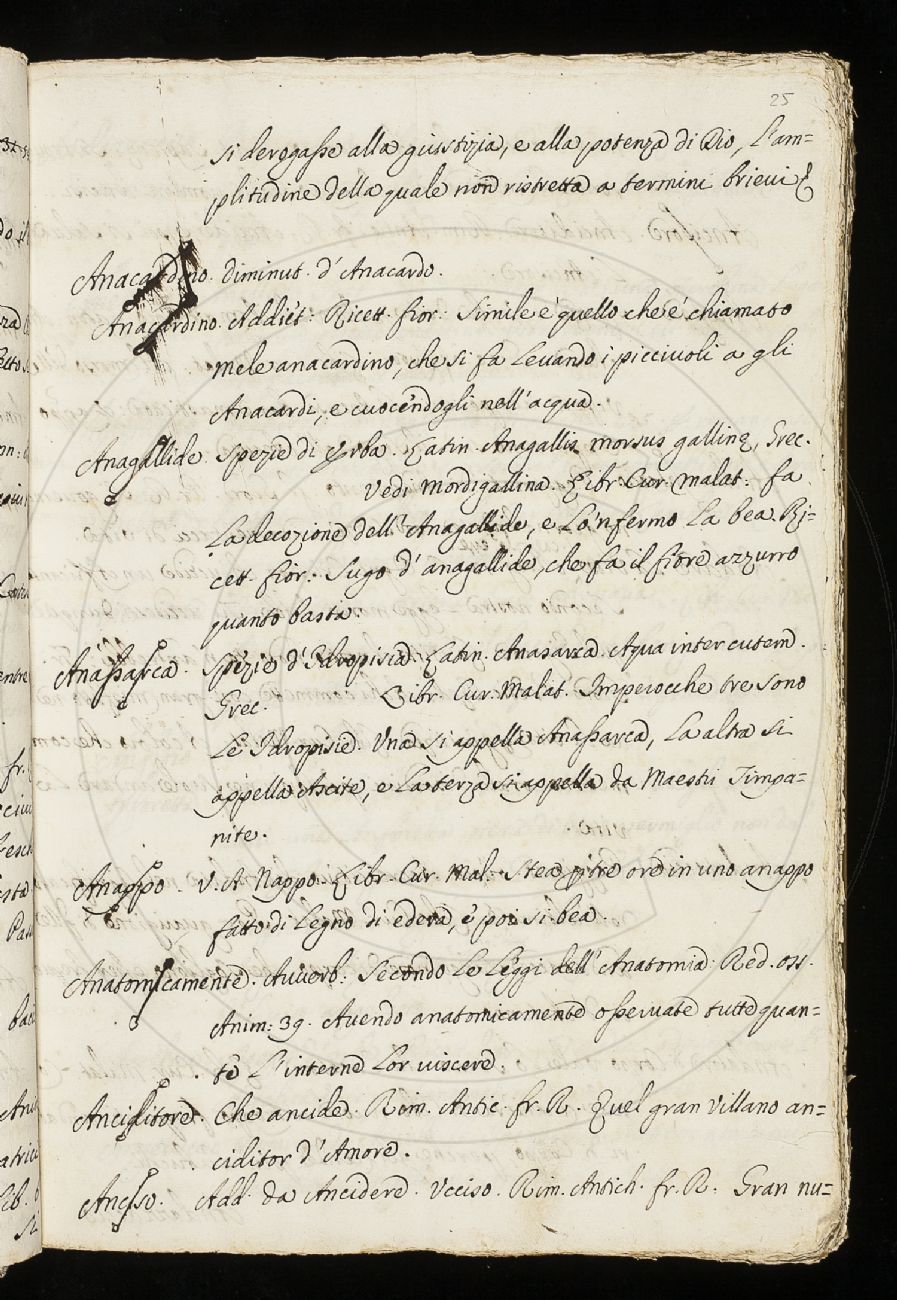 25
si derogasse alla giusstizia, e alla potenza di Dio, l'am=
plitudine della quale non ristretta a termini brievi &
Anacardino. Diminut. d'Anacardo.
Anacardino. Addiet: Ricett. fior: Simile è quello che è chiamato
mele anacardino, che si fa levando i picciuoli a gli
Anacardi, e cuocendogli nell'acqua.
Anagallide. Spezie di Erba. Latin. Anagallis morsus gallinę, Grec.
Vedi Mordigallina. Libr. Cur. malat: fa
la decozione dell'Anagallide, e lo'nfermo la bea. Ri=
cett. fior: Sugo d'anagallide, che fa il fiore azzurro
quanto basta.
Anassarca. Spezie d'Idropisia. Latin. Anasarca. Aqua intercutem.
Grec. Libr. Cur. Malat. Imperocche tre sono
le Idropisie. Una si appella Anassarca, la altra si
appella Ascite, e la terza si appella da Maestri Timpa=
nite.
Anappo. V. A. Nappo. Libr. Cur. Mal: Stea tre ore in uno anappo
fatto di legno di edera, e poi si bea.
Anatomicamente. Avverb: Secondo le leggi dell'Anatomia. Red. oss.
Anim: 39. Avendo anatomicamente osservate tutte quan=
te l'interne lor viscere.
Anciditore. Che ancide. Rim. Antic. fr. R. Quel gran villano an=
ciditor d'Amore.
Anciso. Add. da Ancidere. Ucciso. Rim. Antich. fr. R. Gran nu=